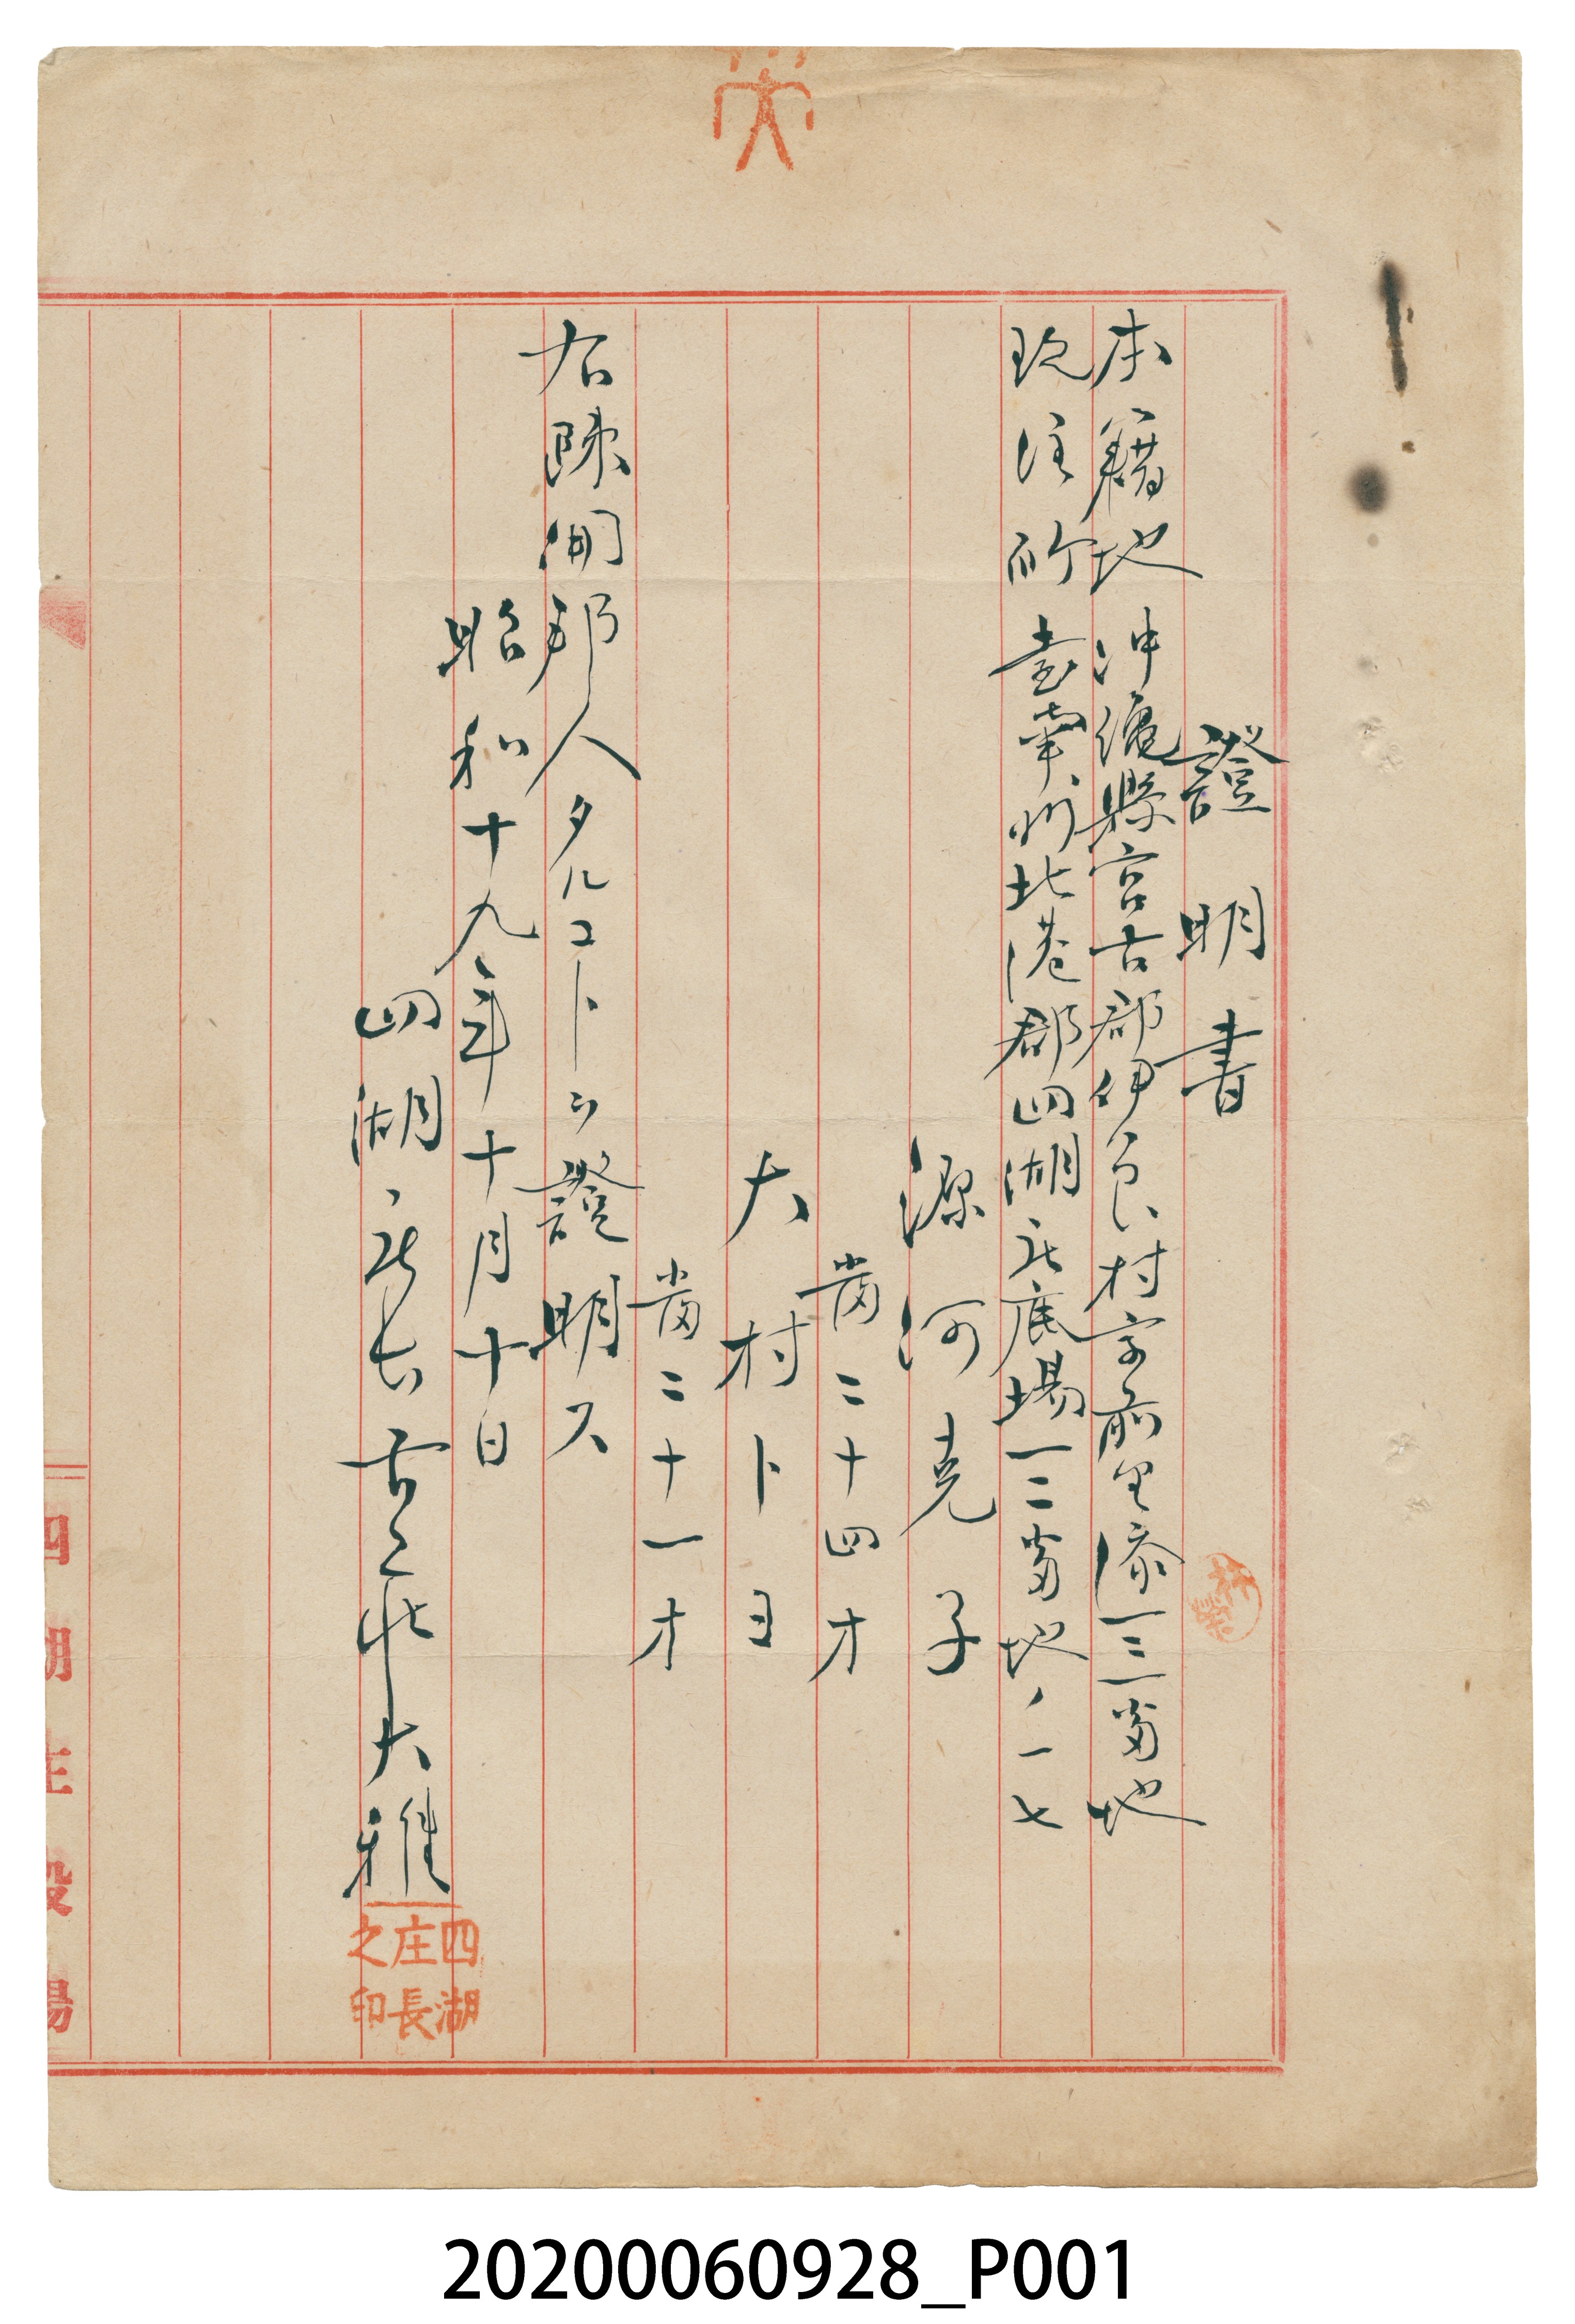 證明書
本籍地 沖繩縣宮古郡伊良村字前里添一三番地
現住所 臺南州北港郡四湖庄底場一二番地ノ一七
源河克子
當二十四才
大村トヨ
當二十一才
右陳開邦人タルコトヲ證明ス
昭和十九年十月十日
四湖庄長 大雅
四湖
庄長
之印
四湖庄役場
20200060928_P001